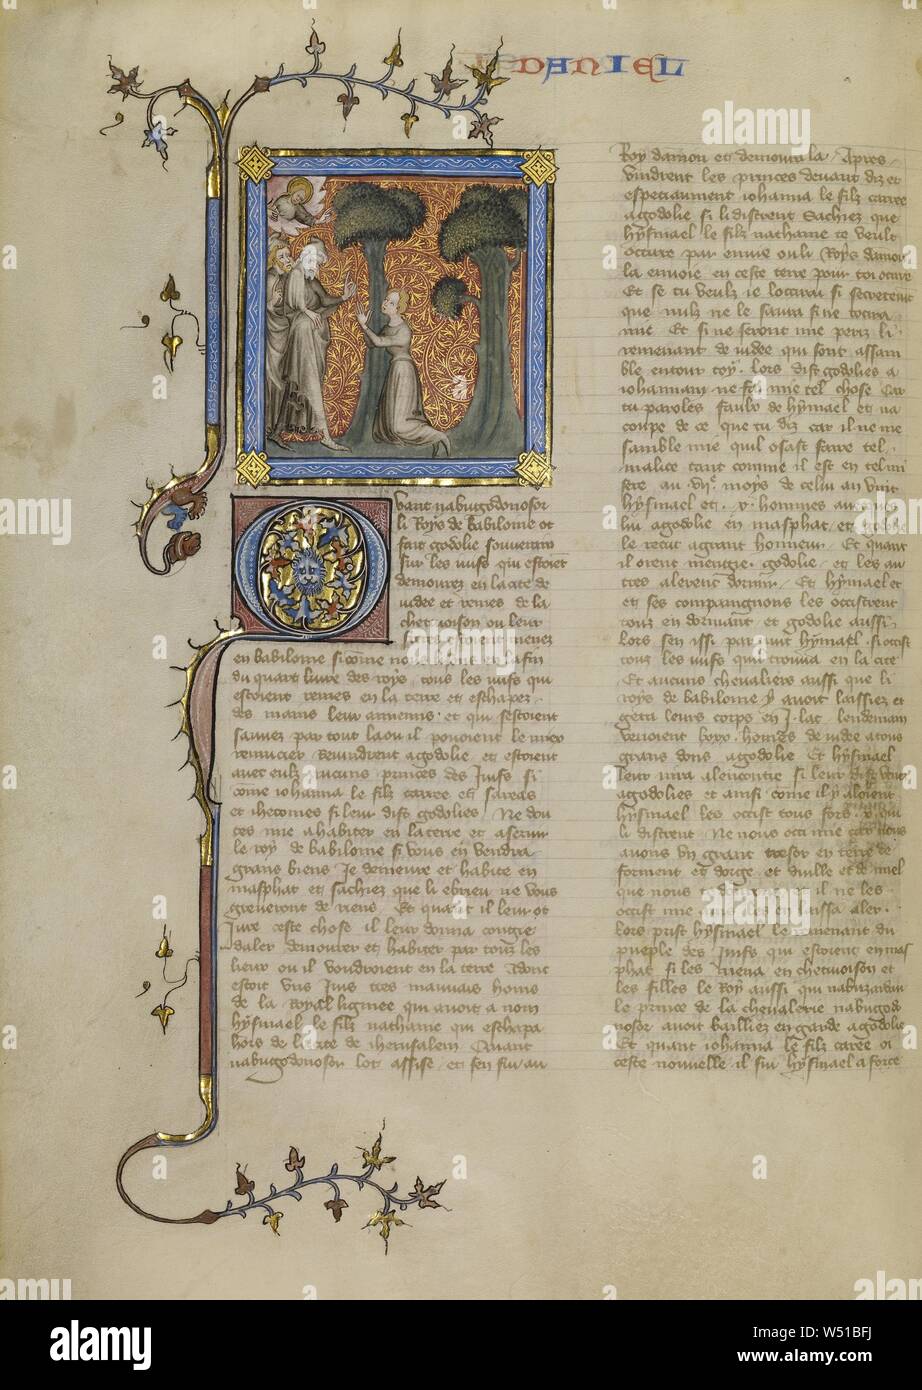 DANIEL
Quant nabugodonosor
li Roys de babiloine ot
fait godolie souverain
sur les iuifs qui estoient
demourez en la cite de
iudee et remes de la
chetivoison ou leur
freres estoient menez
en babiloine si come nous avons en la fin
du quart livre des roys. tous les iuifs qui
estoient remes en la terre et eschapez
des mains leur annemis. et qui sestoient
sauvez par tout la ou il povoient le mex
revindrent a godolie et estoient
avec eulz aucuns princes des Iuifs si
come iohanna le filz caree et sareas
et si leur dist godolies. Ne dou
tes mie a habiter en la terre et a servir
le roy de babiloine si vous en vendra
grans biens Je demeure et habite en
masphat et sachiez que li ebrieu ne vous
greveront de riens. Et quant il leur ot
iure ceste chose il leur donna congie
daler demourer et habiter par touz les
lieux ou il voudroient en la terre Adont
estoit uns iuis tres mauvais homs
de la Royal lignee qui avoit a nom
hysmael le filz nathanie qui eschapa
hors de la cite de iherusalem Quant
nabugodonosor lot assise, et sen fui au
Roy damon et demoura la. Apres
vindrent les princes devant diz et
especiaument iohanna le filz caree
a godolie si li distrent Sachiez que
hysmael le filz nathanie te veult
occire par envie ou li Roys damon
la envoie en ceste terre pour toi occire
Et se tu veulz ie locirai si secretement
que nulz ne le saura si ne tocira
mie Et si ne seront mie periz li
remenant de iudee qui sont assam
ble entour toy. Lors dist godolies a
iohannam ne fai mie tel chose Car
tu paroles faulx de hysmael et na
coupe de ce que tu diz car il ne me
samble mie quil osast faire tel
malice tant comme il est en tel mi
stere au VIIe moys de celui an vint
hysmael et .x. hommes avecques
lui a godolie en masphat, et godolie
le recut a grant honneur. Et quant
il orent mengie. godolie, et les au
tres alerent dormir. Et hysmael et
et ses compaignons les occistrent
touz en dormant et godolie aussi.
Lors sen issi par nuit hysmael. si occist
touz les iuifs qui trouva en la cite
Et aucuns chevaliers aussi que li
roys de babiloine y avoit laissiez et
geta leurs corps en .I. lac. lendemain
venoient homes de iudee a tous
grans dons a godolie Et hysmael
leur ala encontre si leur dist venez
a godolies et ainsi come il y aloient
hysmael les occist tous fors .x. qui
li distrent. Ne nous occi mie car nous
avons un grant tresor en terre de
forment et dorge, et duille et de miel
que nous te donrons et il ne les
occist mie ains les en laissa aler.
Lors prist hysmael le remenant du
pueple des Iuifs qui estoient en mas
phat si les mena en chetivoison et
les filles le Roy aussi qui nabuzardan
le prince de la chevalerie nabugod
nosor avoit bailliez en garde a godolie
Et quant iohanna le filz caree oi
ceste nouvelle il sui hysmael a force
alamy
Image ID: W51BFJ
www.alamy.com